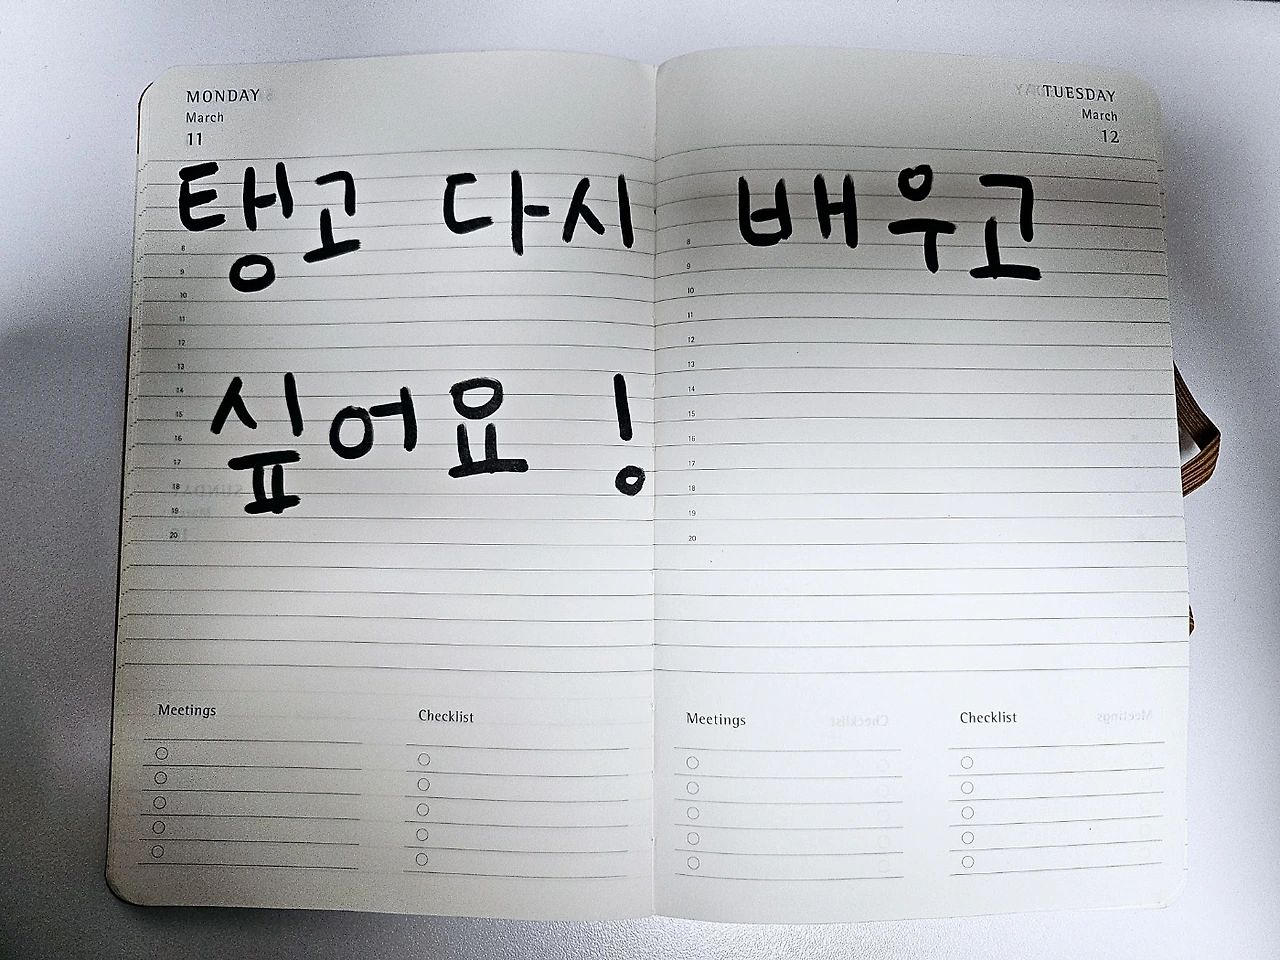 MONDAY
March
11
TUESDAY
March
12
탱고 다시 배우고
싶어요!
8
9
10
11
12
13
14
15
16
17
18
19
20
8
9
10
11
12
13
14
15
16
17
18
19
20
Meetings
Checklist
Meetings
Checklist